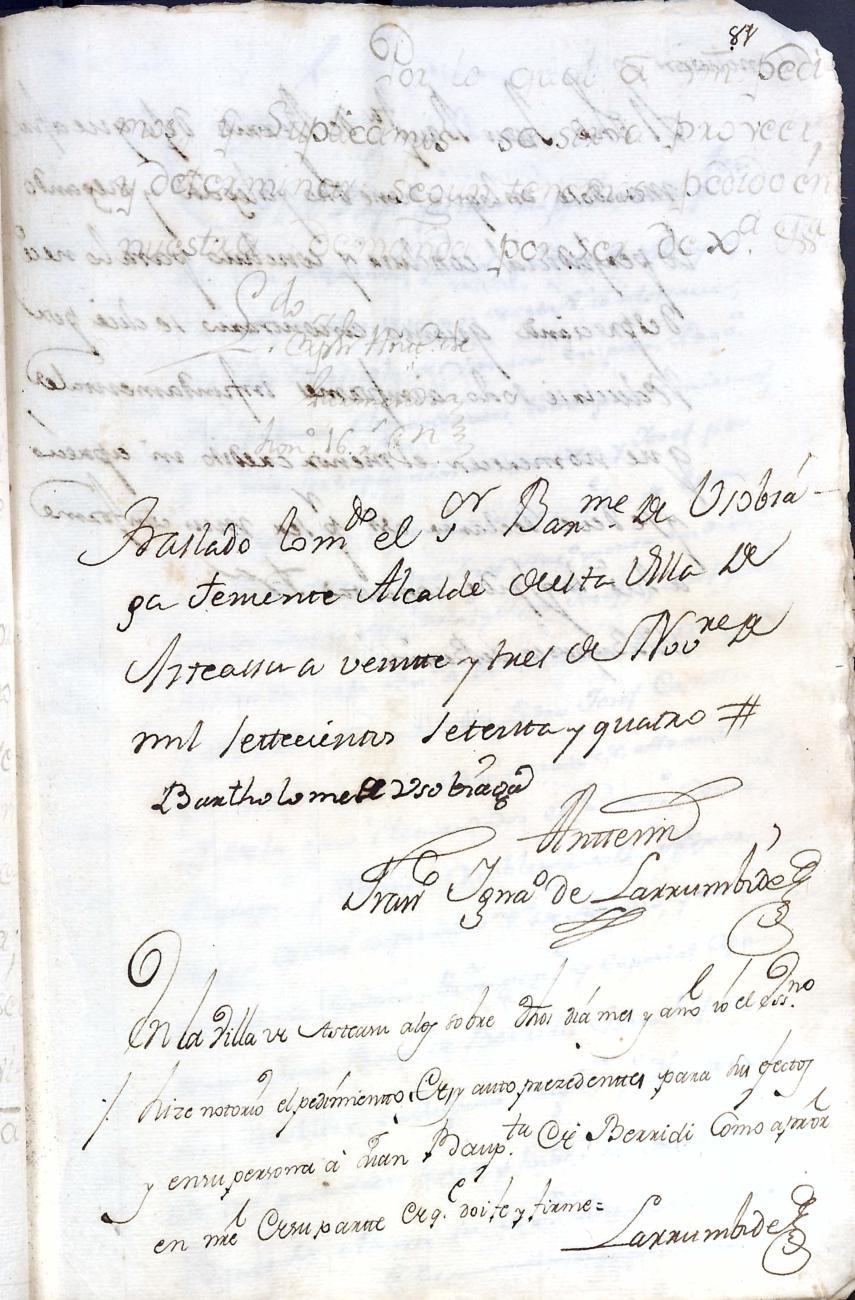 87
Por lo qual a Vm pedi
mos y Suplicamos se sirva proveer,
y determinar segun tenemos pedido en
nuestra demanda por ser de xa. Tsa
Ldo
honos 16 rs
Traslado lo mdo el Sor Barme de Usobiá-
ga teniente Alcalde de esta Villa de
Asteasu a veintte y tres de Novre de
mil settecientos Setenta y quatro #
Bartholome de Usobiaga
Anttemi
Franco Ignao de Larrumbide
En la Villa de Asteasu a los sobre dhos dia mes y año io el Essno
hize notorio el pedimientto, y auto prezedenttes para sus efectos
y en su persona á Juan Baupta de Berridi Como a pror
en nre de su partte de q.e doi fe y firme =
Larrumbide